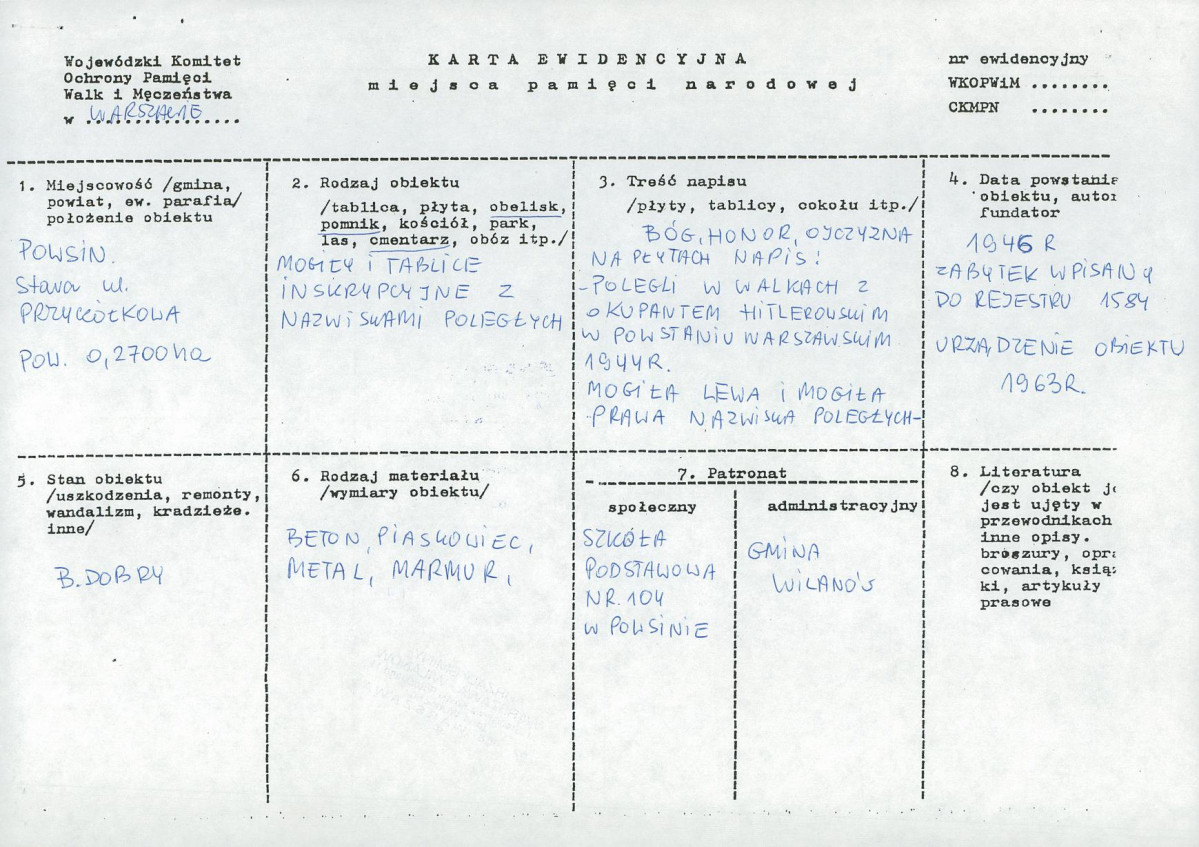 Wojewódzki Komitet
Ochrony Pamięci
Walk i Męczeństwa
w WARSZAWIE
KARTA EWIDENCYJNA
miejsca pamięci narodowej
nr ewidencyjny
WKOPWiM ........
CKMPN ........
1. Miejscowość /gmina,
powiat, ew. parafia/
położenie obiektu
POWSIN.
Stara ul.
PRZYCZÓŁKOWA
POW. 0,2700 ha
2. Rodzaj obiektu
/tablica, płyta, obelisk,
pomnik, kościół, park,
las, cmentarz, obóz itp./
MOGIŁY I TABLICE
INSKRYPCYJNE Z
NAZWISKAMI POLEGŁYCH
3. Treść napisu
/płyty, tablicy, cokołu itp./
BÓG, HONOR, OJCZYZNA
NA PŁYTACH NAPIS:
-POLEGLI W WALKACH Z
OKUPANTEM HITLEROWSKIM
W POWSTANIU WARSZAWSKIM
1944R.
MOGIŁA LEWA i MOGIŁA
PRAWA NAZWISKA POLEGŁYCH-
4. Data powstanie
obiektu, autor
fundator
1945 R
ZABYTEK WPISANY
DO REJESTRU 1584
URZĄDZENIE OBIEKTU
1963R.
5. Stan obiektu
/uszkodzenia, remonty,
wandalizm, kradzieże.
inne/
B. DOBRY
6. Rodzaj materiału
/wymiary obiektu/
BETON, PIASKOWIEC,
METAL, MARMUR,
7. Patronat
społeczny
SZKÓŁA
PODSTAWOWA
NR. 104
W POWSINIE
administracyjny
GMINA
WILANÓW
8. Literatura
/czy obiekt je
jest ujęty w
przewodnikach
inne opisy.
broszury, opra
cowania, książ
ki, artykuły
prasowe